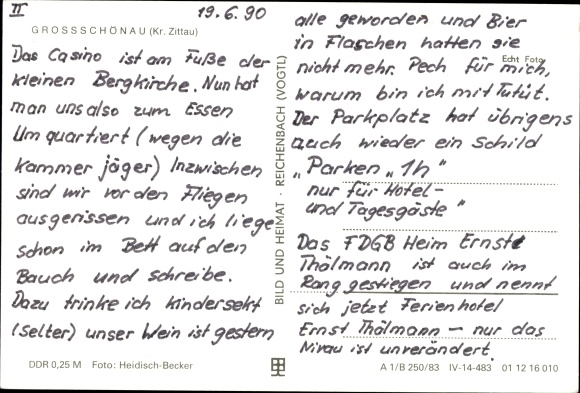 II
19.6.90
GROSSSCHÖNAU (Kr. Zittau)
Das Casino ist am Fuße der
kleinen Bergkirche. Nun hat
man uns also zum Essen
Umquartiert (wegen die
Kammerjäger) Inzwischen
sind wir vor den Fliegen
ausgerissen und ich liege
schon im Bett auf den
Bauch und schreibe.
Dazu trinke ich Kindersekt
(Selter) unser Wein ist gestern
DDR 0,25 M Foto: Heidisch-Becker
BILD UND HEIMAT · REICHENBACH (VOGTL)
alle geworden und Bier
in Flaschen hatten sie
Echt Foto
nicht mehr. Pech für mich,
warum bin ich mit Tutut.
Der Parkplatz hat übrigens
auch wieder ein Schild
„Parken „1h"
nur für Hotel-
und Tagesgäste"
Das FDGB Heim Ernst
Thälmann ist auch im
Rang gestiegen und nennt
sich jetzt Ferienhotel
Ernst Thälmann – nur das
Nivau ist unverändert.
A 1/B 250/83 IV-14-483 01 12 16 010